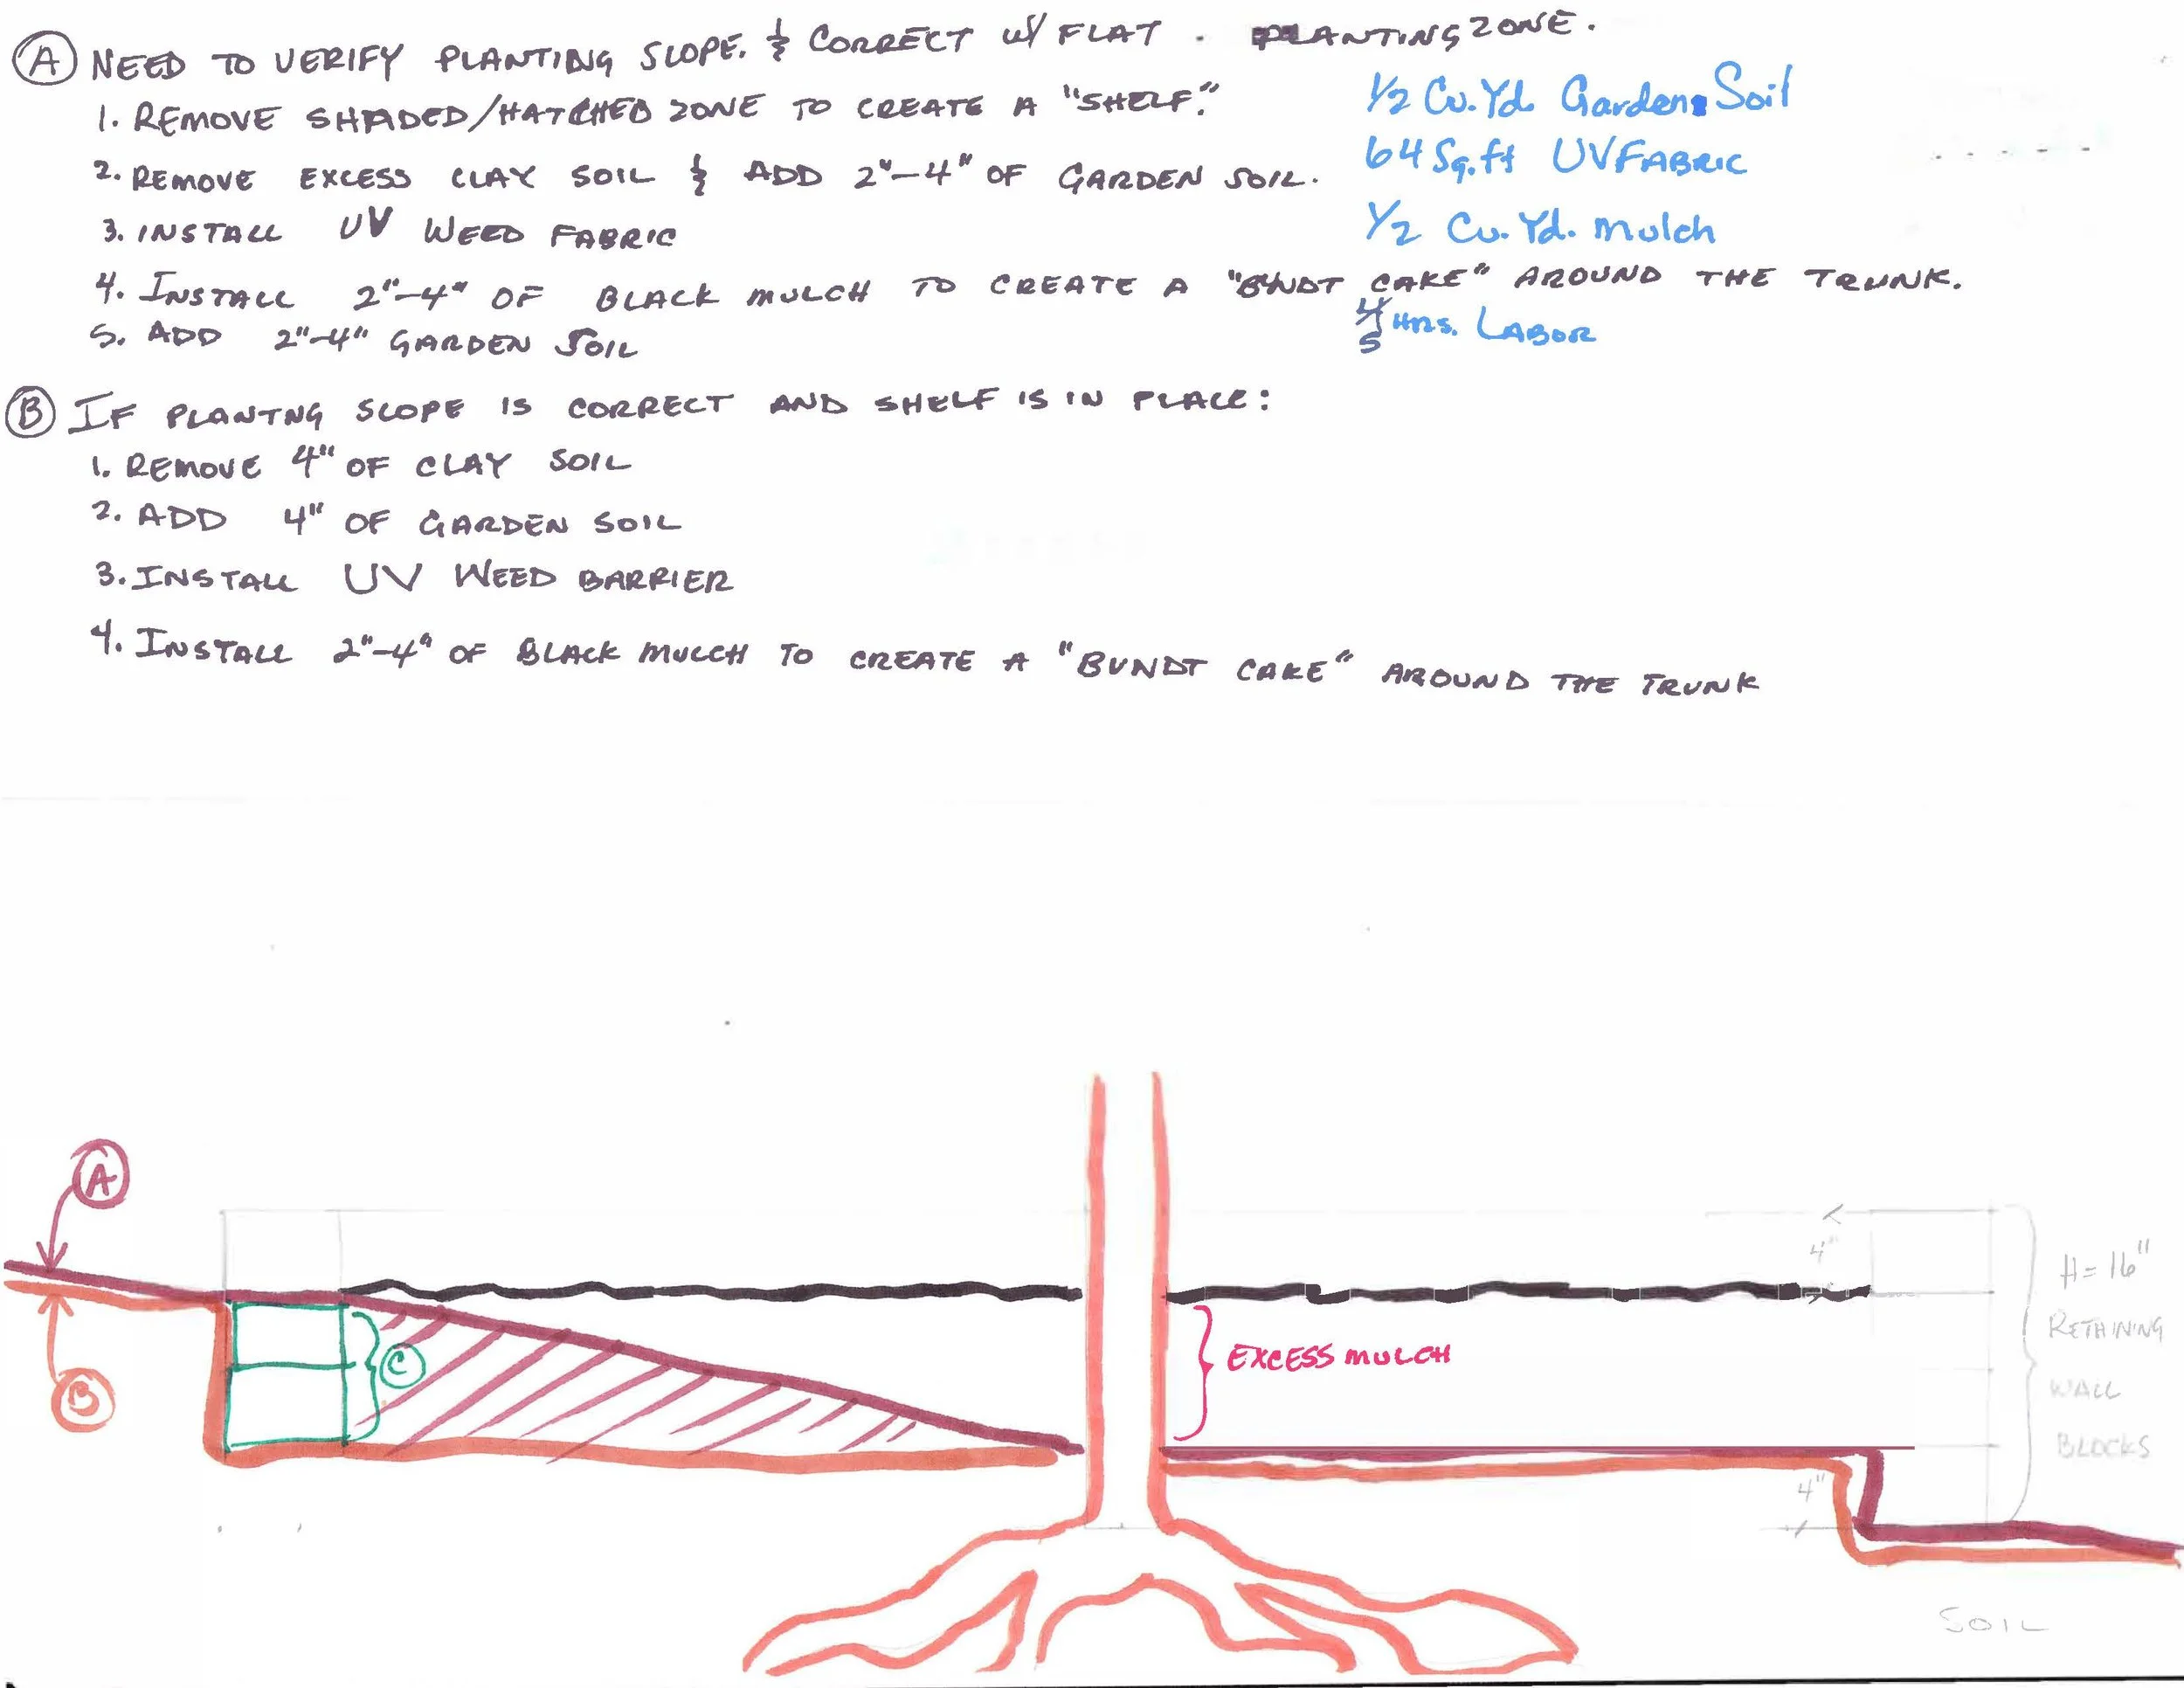 Ⓐ NEED TO VERIFY PLANTING SLOPE. & CORRECT W/ FLAT . PLANTING ZONE.
1. REMOVE SHADED/HATCHED ZONE TO CREATE A "SHELF."
1/2 Cu. Yd. Garden Soil
2. REMOVE EXCESS CLAY SOIL & ADD 2"-4" OF GARDEN SOIL.
64 Sq. ft UV FABRIC
3. INSTALL UV WEED FABRIC
1/2 Cu. Yd. Mulch
4. INSTALL 2"-4" OF BLACK MULCH TO CREATE A "BUNDT CAKE" AROUND THE TRUNK.
4/5 HRS. LABOR
5. ADD 2"-4" GARDEN SOIL
Ⓑ IF PLANTNG SLOPE IS CORRECT AND SHELF IS IN PLACE:
1. REMOVE 4" OF CLAY SOIL
2. ADD 4" OF GARDEN SOIL
3. INSTALL UV WEED BARRIER
4. INSTALL 2"-4" OF BLACK MULCH TO CREATE A "BUNDT CAKE" AROUND THE TRUNK
Ⓐ
4"
H=16"
RETAINING
WALL
BLOCKS
Ⓒ
EXCESS MULCH
Ⓑ
4"
SOIL